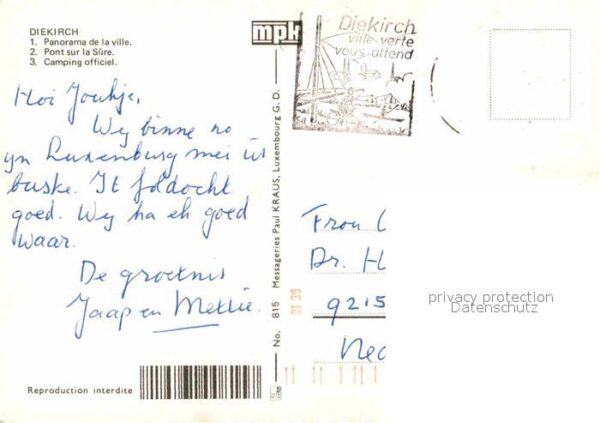 DIEKIRCH
1. Panorama de la ville.
2. Pont sur la Sûre.
3. Camping officiel.
mpk
Diekirch
ville verte
vous attend
Hoi Joukje,
Wy binne no
yn Luxenburg mei ús
buske. It foldocht
goed. Wy ha ek goed
waar.
De groetnis
Jaap en Mettie.
No. 815 Messageries Paul KRAUS, Luxembourg G.D.
Frou
Dr. H
9215
Ned
privacy protection
Datenschutz
Reproduction interdite